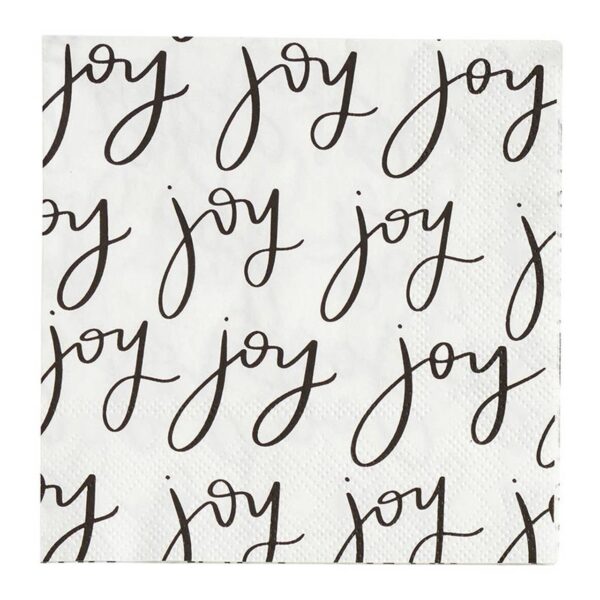 joy joy joy
oy joy joy j
joy joy joy
oy joy joy jo